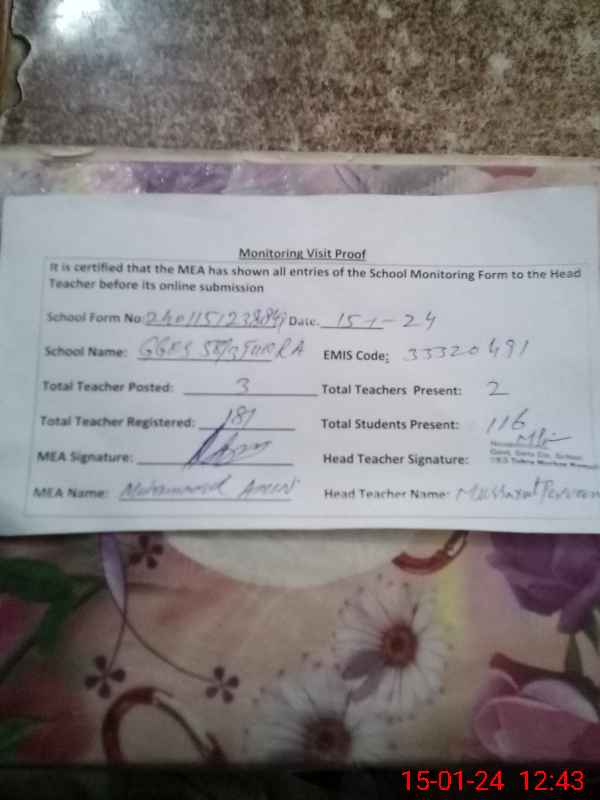 Monitoring Visit Proof
It is certified that the MEA has shown all entries of the School Monitoring Form to the Head
Teacher before its online submission
School Form No: Date. 15-1-24
School Name: GGES EMIS Code: 33320491
Total Teacher Posted: 3 Total Teachers Present: 2
Total Teacher Registered: 187 Total Students Present: 116
MEA Signature: Head Teacher Signature:
MEA Name: Muhammad Amin Head Teacher Name: Mussarat Perveen
15-01-24 12:43